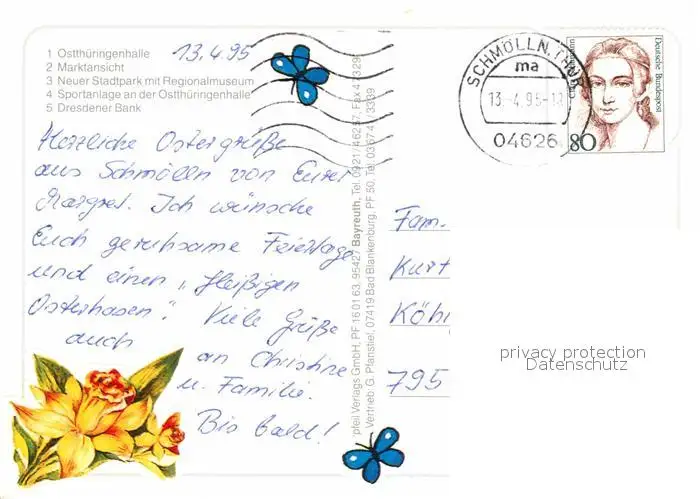 1 Ostthüringenhalle
2 Marktansicht
3 Neuer Stadtpark mit Regionalmuseum
4 Sportanlage an der Ostthüringenhalle
5 Dresdener Bank
13.4.95
Herzliche Ostergrüße
aus Schmölln von Eurer
Margret. Ich wünsche
Euch geruhsame Feiertage
und einen „fleißigen
Osterhasen". Viele Grüße
auch an Christine
u. Familie.
Bis bald!
pfeil Verlags GmbH, PF 16 01 63, 95427 Bayreuth, Tel. 0921/
Vertrieb: G. Pfanstiel, 07419 Bad Blankenburg, PF 50, Tel.
SCHMÖLLN, THÜR
ma
13.-4.95-
04626
Deutsche Bundespost
80
Fam.
Kurt
Köh
795
privacy protection
Datenschutz